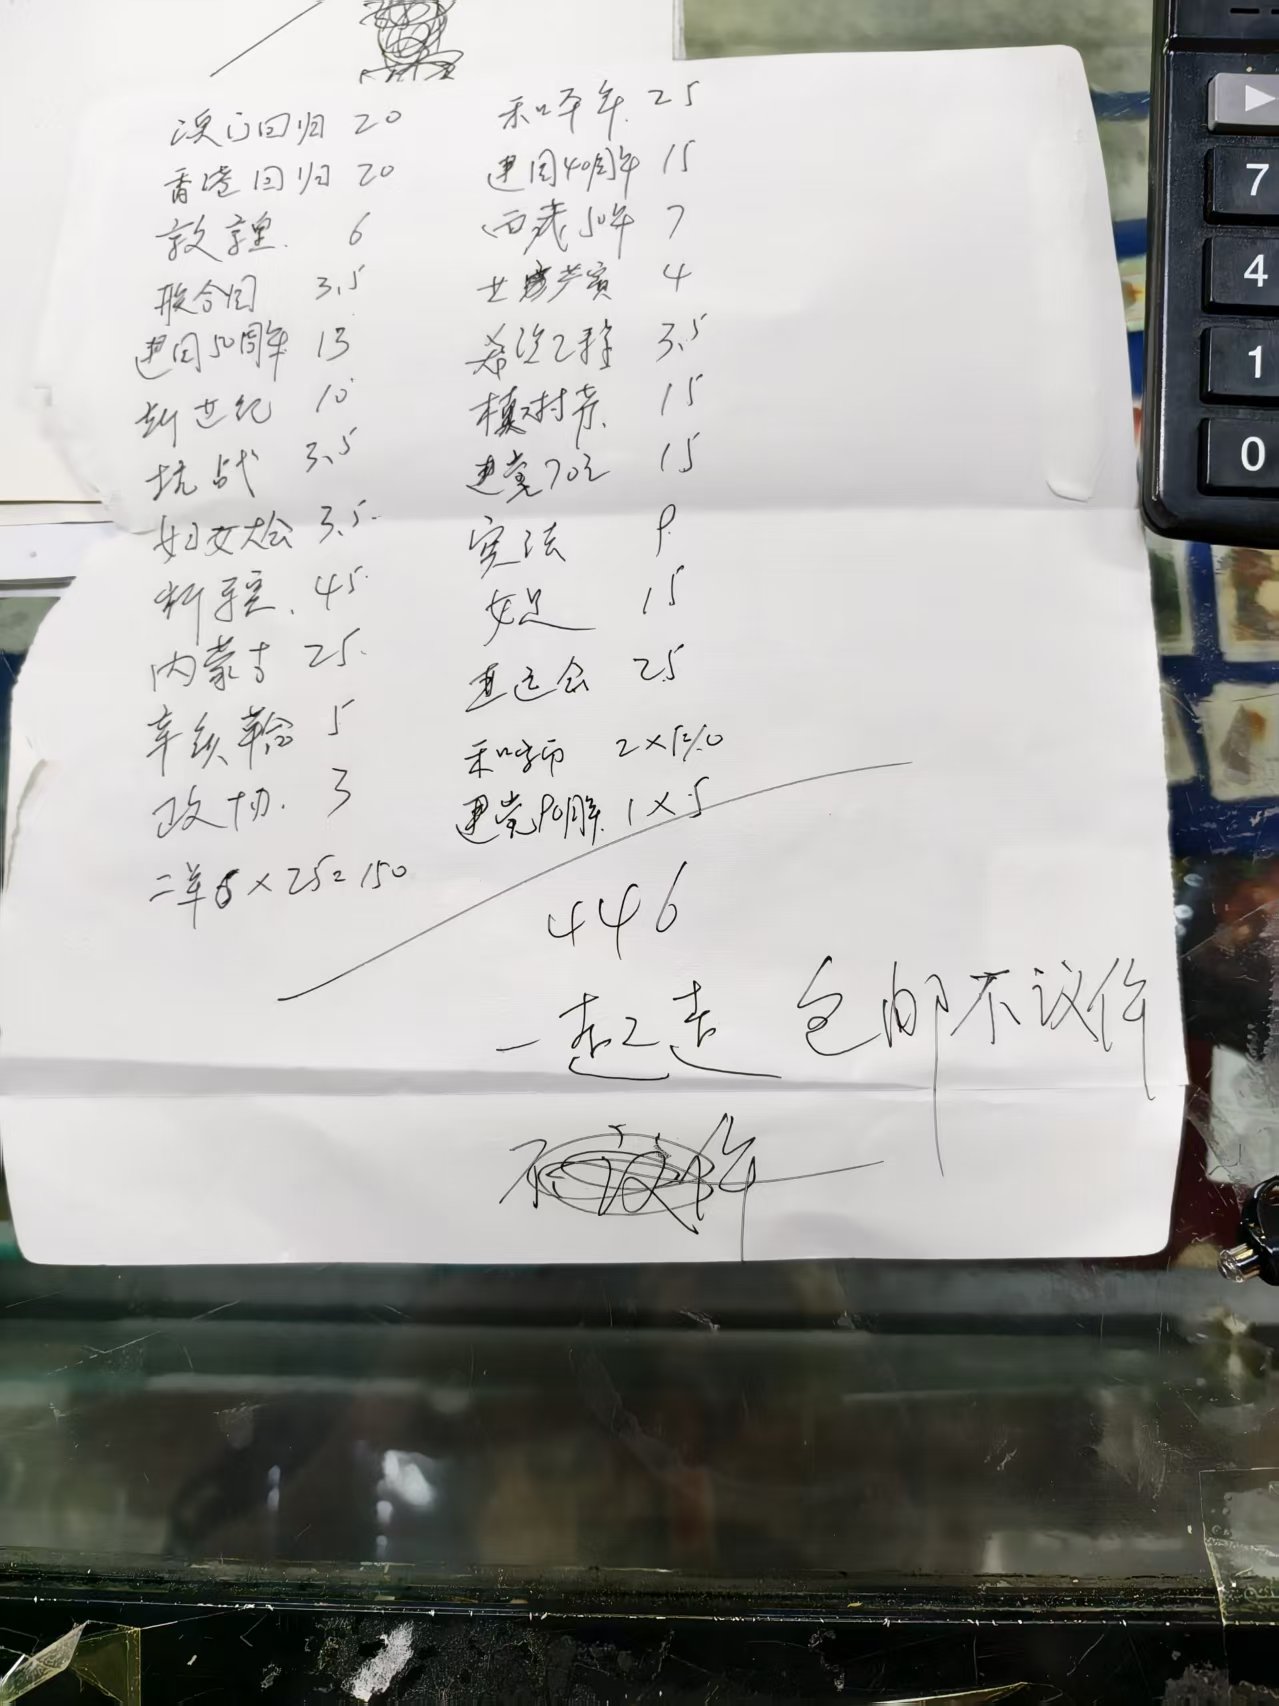 澳门回归 20
香港回归 20
敦煌. 6
联合国 3.5
建国50周年 13
新世纪 10
抗战 3.5
妇女大会 3.5.
新疆. 45.
内蒙古 25.
辛亥革命 5
政协. 3
二羊6×25=150
和平年. 25
建国40周年 15
西藏50年 7
世 4
希望工程 3.5
植树节. 15
建党70年 15
宪法 9.
女足 15
亚运会 25
和字币 2×5=10
建党90周年. 1×5
446
一起走
包邮不议价
7
4
1
0